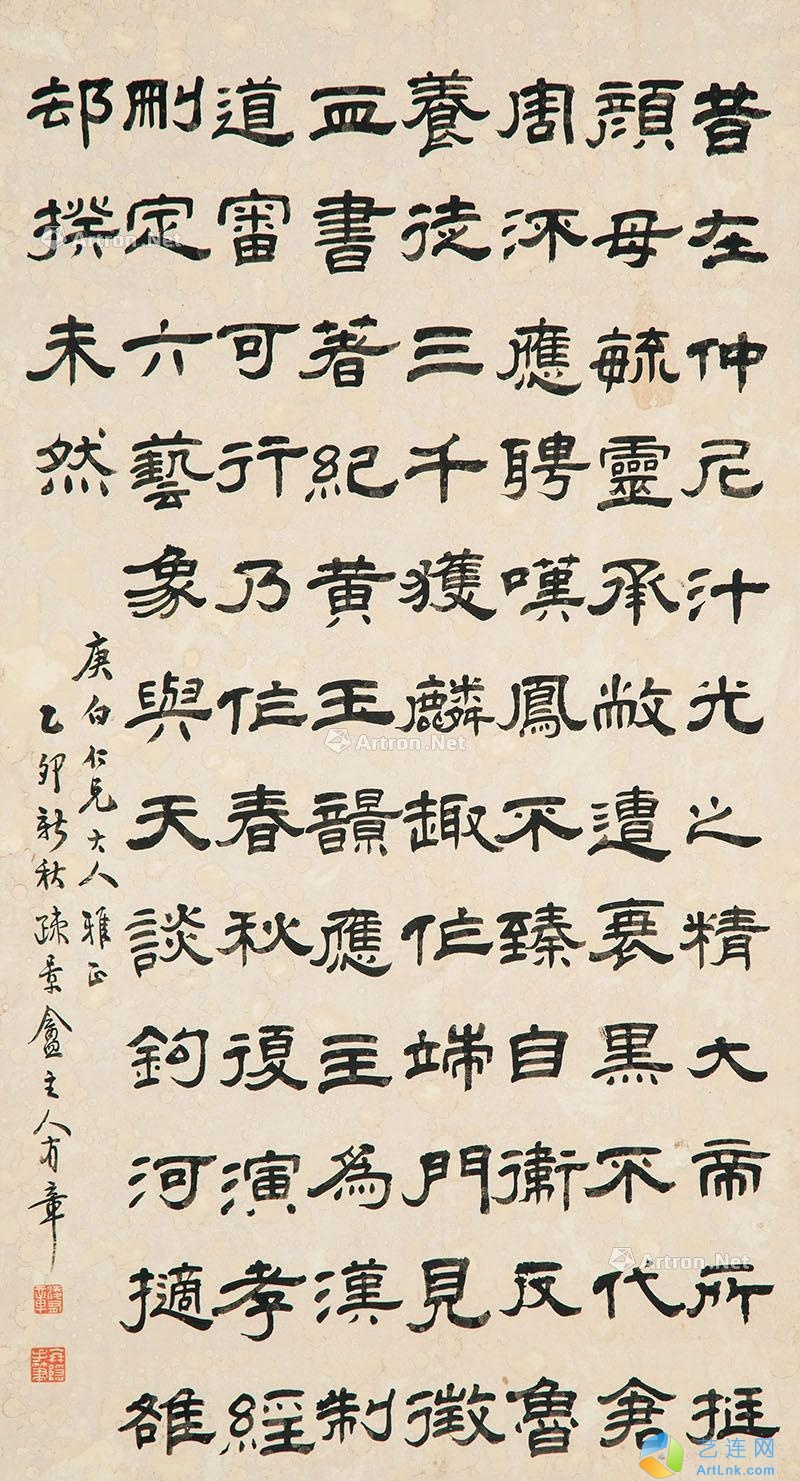 昔在仲尼汁光之精大帝所挺
顏母毓靈承敝遭衰黑不代倉
周流應聘嘆鳳不臻自衛反魯
養徒三千獲麟趣作端門見徵
血書著紀黃玉韻應主為漢制
道審可行乃作春秋復演孝經
刪定六藝象與天談鉤河擿雒
却揆未然
庚白仁兄大人雅正
乙卯新秋疎景盦主人有章
Artron.Net
Artron.Net
Artron.Net
艺连网
ArtLnk.com